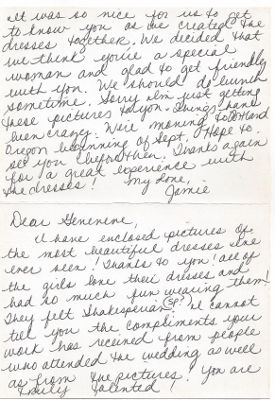 It was so nice for us to get
to know you as we created the
dresses together. We decided that
we think you're a special
woman and glad to get friendly
with you. We should do lunch
sometime. Sorry I'm just getting
these pictures to you. Things have
been crazy. We're moving to
Oregon beginning of Sept. I hope to
see you before then. Thanks again
for a great experience with
the dresses! My love,
Jamie
Dear Genevieve,
I have enclosed pictures of
the most beautiful dresses I've
ever seen! Thanks to you! All of
the girls love their dresses and
had so much fun wearing them!
They felt Shakesperian (sp?) I cannot
tell you the compliments your
work has received from people
who attended the wedding as well
as from the pictures. You are
Truly talented!